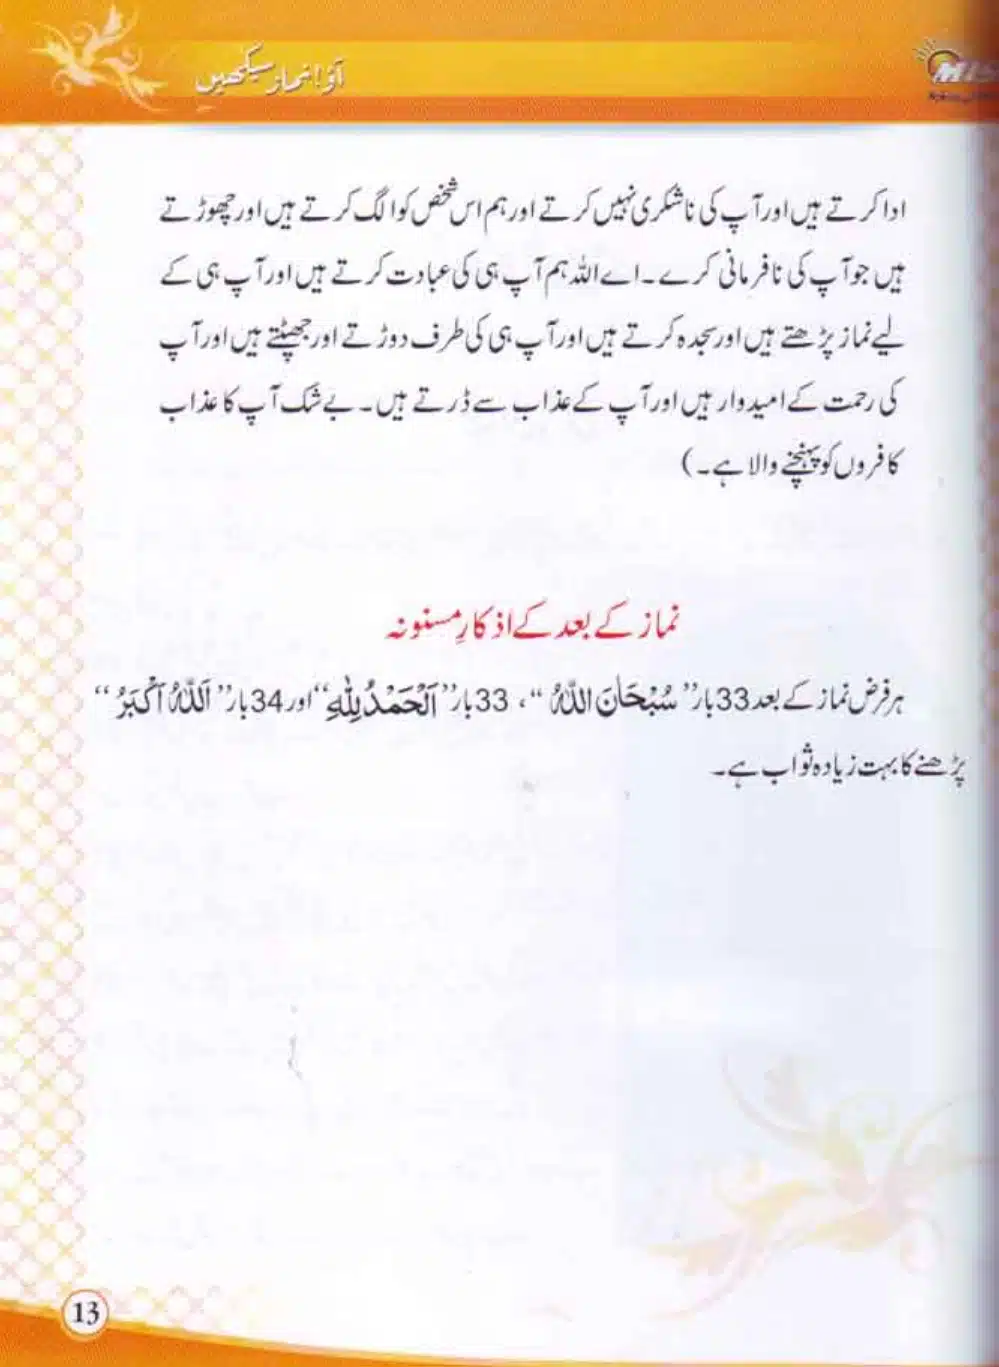 آؤ! نماز سیکھیں
MIS
ادا کرتے ہیں اور آپ کی ناشکری نہیں کرتے اور ہم اس شخص کو الگ کرتے ہیں اور چھوڑتے
ہیں جو آپ کی نافرمانی کرے۔ اے اللہ ہم آپ ہی کی عبادت کرتے ہیں اور آپ ہی کے
لیے نماز پڑھتے ہیں اور سجدہ کرتے ہیں اور آپ ہی کی طرف دوڑتے اور جھپٹتے ہیں اور آپ
کی رحمت کے امیدوار ہیں اور آپ کے عذاب سے ڈرتے ہیں۔ بے شک آپ کا عذاب
کافروں کو پہنچنے والا ہے۔)
نماز کے بعد کے اذکارِ مسنونہ
ہر فرض نماز کے بعد 33 بار ”سُبْحَانَ اللهُ“، 33 بار ”اَلْحَمْدُ لِلّٰهِ“ اور 34 بار ”اَللهُ اَکْبَرُ“
پڑھنے کا بہت زیادہ ثواب ہے۔
13